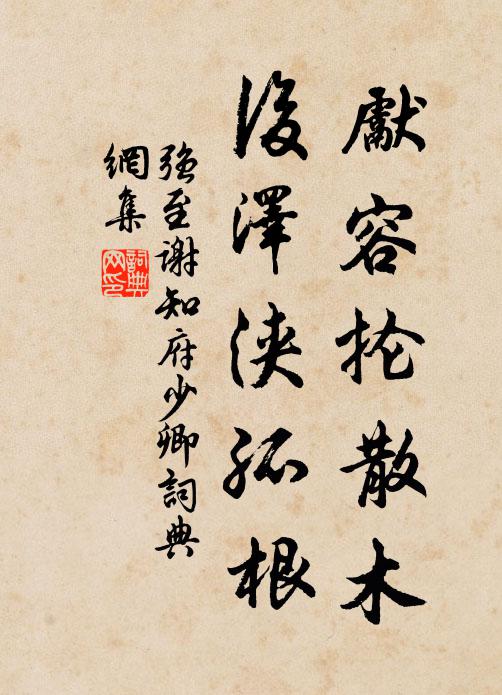 獻容抡散木
後澤浹孤根
强至謝知府少卿詞典
網集
詞典
网印